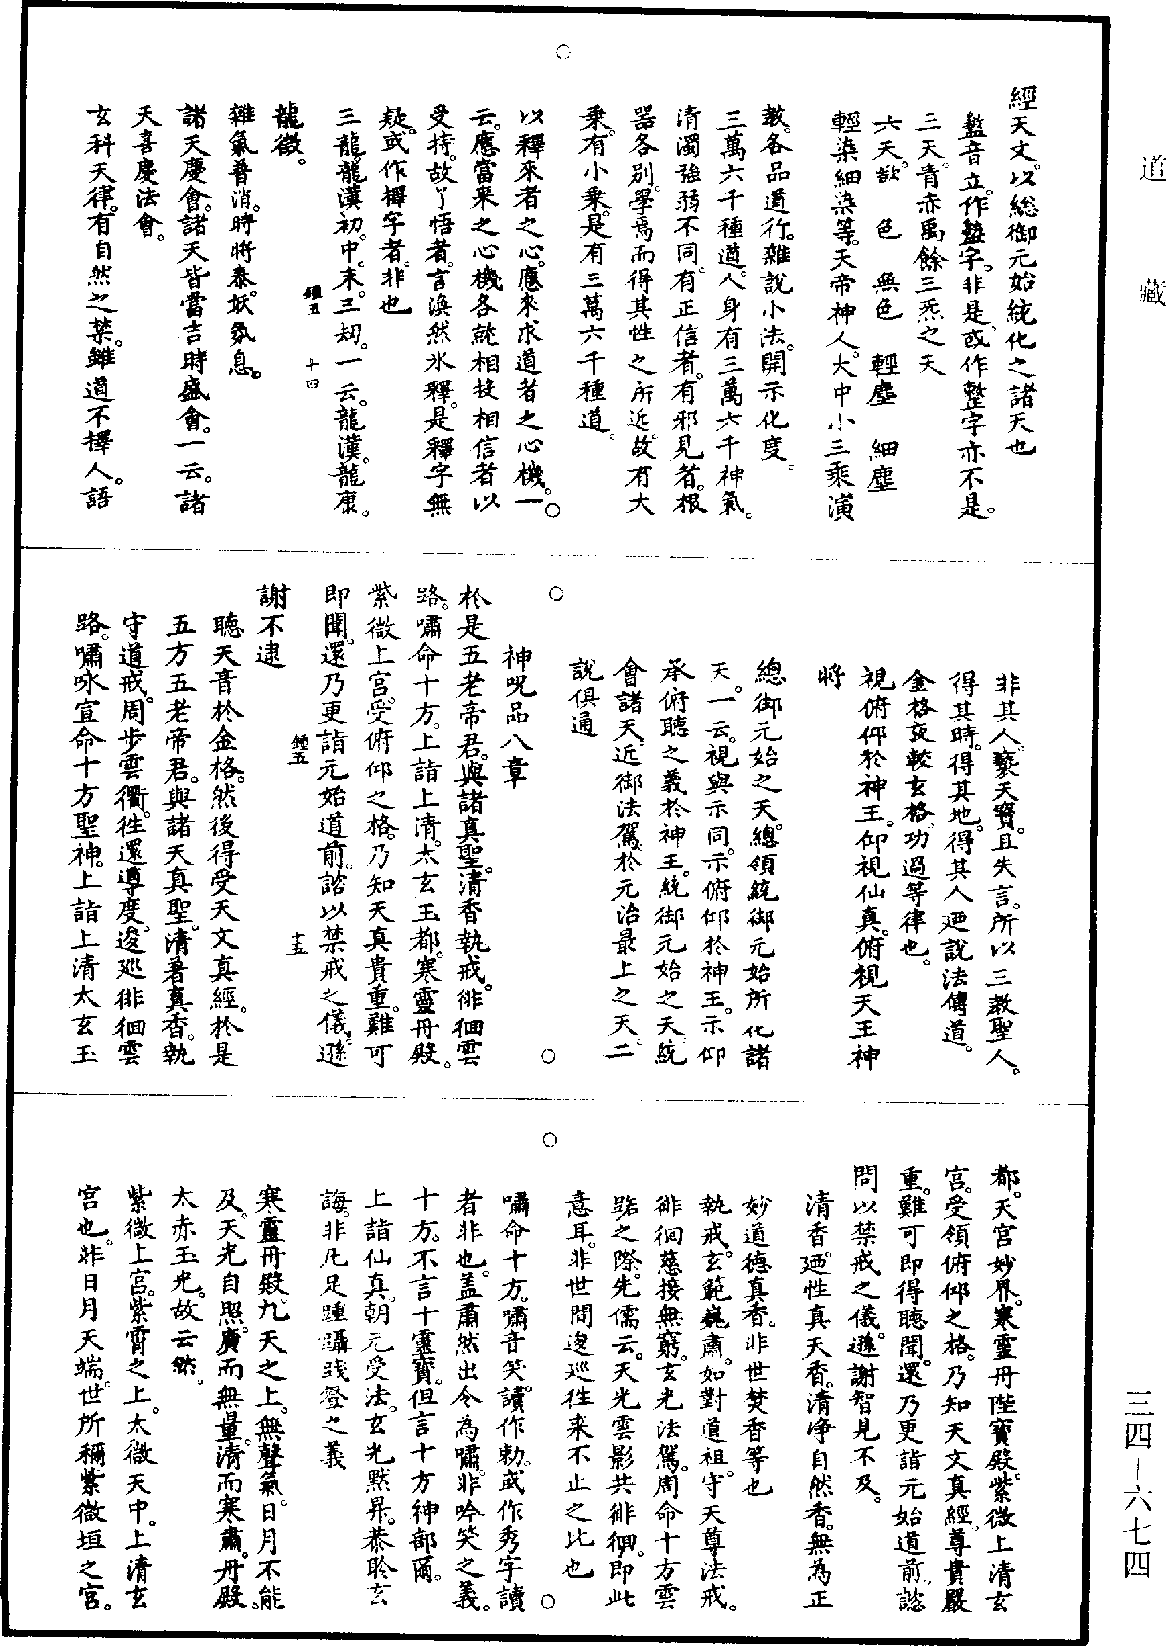 道藏
經天文。以總御元始統化之諸天也
盩音立。作盩字。非是。或作整字亦不是。
三天。青赤禹餘三炁之天
六天。欲 色 無色 輕塵 細塵
輕染細染等。天帝神人。大中小三乘演
教。各品道行。雜說小法。開示化度。
三萬六千種道。人身有三萬六千神氣。
清濁強弱不同。有正信者。有邪見者。根
器各別。學焉而得其性之所近。故有大
乘。有小乘。是有三萬六千種道。
以釋來者之心。應來求道者之心機。一
云。應當來之心機各就相投相信者以
受持。故了悟者。言渙然冰釋。是釋字無
疑。或作擇字者。非也
三龍。龍漢初。中。末。三劫。一云。龍漢。龍康。
鍾五 十四
龍徵。
雜氣普消。時將泰。妖氛息。
諸天慶會。諸天皆當吉時盛會。一云。諸
天喜慶法會。
玄科天律。有自然之禁。雖道不擇人。語
非其人。褻天寶。且失言。所以三教聖人。
得其時。得其地。得其人迺說法傳道。
金格夜較玄格。功過等律也。
視俯仰於神王。仰視仙真。俯視天王神
將
總御元始之天。總領統御元始所化諸
天。一云。視與示同。示俯仰於神王。示仰
承俯聽之義於神王。統御元始之天。統
會諸天。近御法駕於元治最上之天。二
說俱通
神呪品八章
於是五老帝君。與諸真聖。清香執戒。徘徊雲
路。嘯命十方。上詣上清。太玄玉都。寒靈丹殿。
紫微上宮。受俯仰之格。乃知天真貴重。難可
即聞。還乃更詣元始道前。諮以禁戒之儀。遜
鍾五 十五
謝不逮
聽天音於金格。然後得受天文真經。於是
五方五老帝君。與諸天真聖。清署真香。執
守道戒。周步雲衢。往還導度。逡巡徘徊雲
路。嘯咏宣命十方聖神。上詣上清太玄玉
都。天宮妙界。寒靈丹陛寶殿。紫微上清玄
宮。受領俯仰之格。乃知天文真經。尊貴嚴
重。難可即得聽聞。還乃更詣元始道前。諮
問以禁戒之儀。遜謝智見不及。
清香。迺性真天香。清淨自然香。無為正
妙道德真香。非世焚香等也
執戒。玄範巍肅。如對道祖。守天尊法戒。
徘徊慈接無窮。玄光法駕。周命十方雲
路之際。先儒云。天光雲影共徘徊。即此
意耳。非世間逡巡往來不止之比也
嘯命十方。嘯音笑。讀作勅。或作秀字讀
者非也。蓋肅然出令為嘯。非吟笑之義。
十方。不言十靈寶。但言十方神部爾。
上詣仙真。朝元受法。玄光默昇。恭聆玄
誨。非凡足踵躡踐登之義
寒靈丹殿。九天之上。無聲氣。日月不能
及。天光自照。廣而無量。清而寒肅。丹殿。
太赤玉光。故云然。
紫微上宮。紫霄之上。太微天中。上清玄
宮也。非日月天端。世所稱紫微垣之宮。
三四－六七四